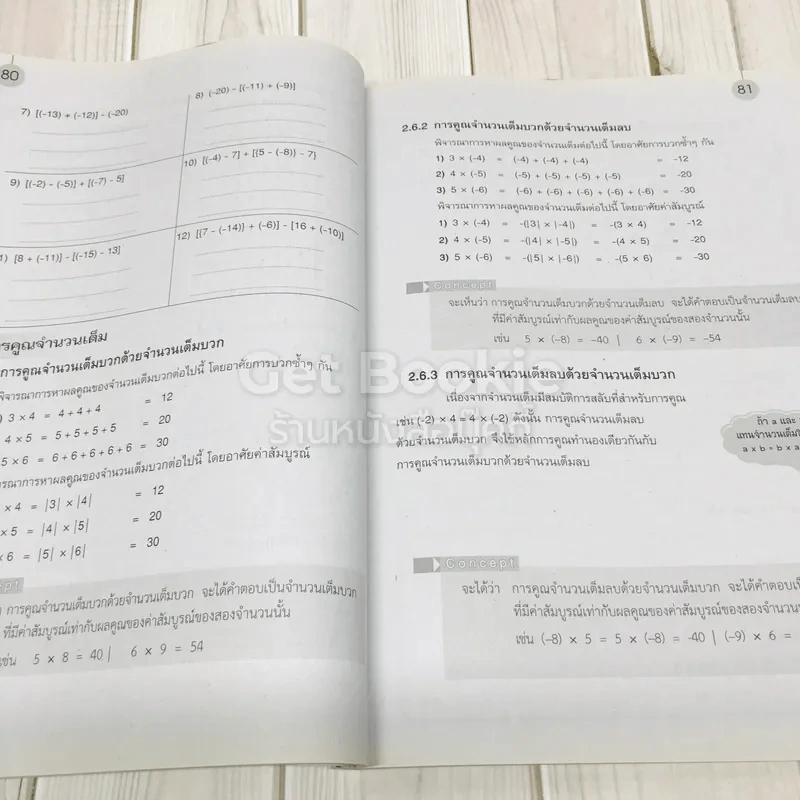 80
7) [(-13) + (-12)] - (-20)
8) (-20) - [(-11) + (-9)]
9) [(-2) - (-5)] + [(-7) - 5]
10) [(-4) - 7] + [{5 - (-8)} - 7}
1) [8 + (-11)] - [(-15) - 13]
12) [{7 - (-14)} + (-6)] - [16 + (-10)]
ารคูณจำนวนเต็ม
การคูณจำนวนเต็มบวกด้วยจำนวนเต็มบวก
พิจารณาการหาผลคูณของจำนวนเต็มต่อไปนี้ โดยอาศัยการบวกซ้ำๆ กัน
) 3 × 4 = 4 + 4 + 4 = 12
4 × 5 = 5 + 5 + 5 + 5 = 20
5 × 6 = 6 + 6 + 6 + 6 + 6 = 30
ารณาการหาผลคูณของจำนวนเต็มต่อไปนี้ โดยอาศัยค่าสัมบูรณ์
× 4 = |3| × |4| = 12
× 5 = |4| × |5| = 20
× 6 = |5| × |6| = 30
ept
การคูณจำนวนเต็มบวกด้วยจำนวนเต็มบวก จะได้คำตอบเป็นจำนวนเต็มบวก
ที่มีค่าสัมบูรณ์เท่ากับผลคูณของค่าสัมบูรณ์ของสองจำนวนนั้น
เช่น 5 × 8 = 40 | 6 × 9 = 54
81
2.6.2 การคูณจำนวนเต็มบวกด้วยจำนวนเต็มลบ
พิจารณาการหาผลคูณของจำนวนเต็มต่อไปนี้ โดยอาศัยการบวกซ้ำๆ กัน
1) 3 × (-4) = (-4) + (-4) + (-4) = -12
2) 4 × (-5) = (-5) + (-5) + (-5) + (-5) = -20
3) 5 × (-6) = (-6) + (-6) + (-6) + (-6) + (-6) = -30
พิจารณาการหาผลคูณของจำนวนเต็มต่อไปนี้ โดยอาศัยค่าสัมบูรณ์
1) 3 × (-4) = -(|3| × |-4|) = -(3 × 4) = -12
2) 4 × (-5) = -(|4| × |-5|) = -(4 × 5) = -20
3) 5 × (-6) = -(|5| × |-6|) = -(5 × 6) = -30
Concept
จะเห็นว่า การคูณจำนวนเต็มบวกด้วยจำนวนเต็มลบ จะได้คำตอบเป็นจำนวนเต็มลบ
ที่มีค่าสัมบูรณ์เท่ากับผลคูณของค่าสัมบูรณ์ของสองจำนวนนั้น
เช่น 5 × (-8) = -40 | 6 × (-9) = -54
2.6.3 การคูณจำนวนเต็มลบด้วยจำนวนเต็มบวก
เนื่องจากจำนวนเต็มมีสมบัติการสลับที่สำหรับการคูณ
เช่น (-2) × 4 = 4 × (-2) ดังนั้น การคูณจำนวนเต็มลบ
ด้วยจำนวนเต็มบวก จึงใช้หลักการคูณทำนองเดียวกันกับ
การคูณจำนวนเต็มบวกด้วยจำนวนเต็มลบ
ถ้า a และ
แทนจำนวนเต็ม
a × b = b × a
Concept
จะได้ว่า การคูณจำนวนเต็มลบด้วยจำนวนเต็มบวก จะได้คำตอบเป็
ที่มีค่าสัมบูรณ์เท่ากับผลคูณของค่าสัมบูรณ์ของสองจำนวน
เช่น (-8) × 5 = 5 × (-8) = -40 | (-9) × 6 =
Get Bookie
ร้านหนังสือมีคุณ